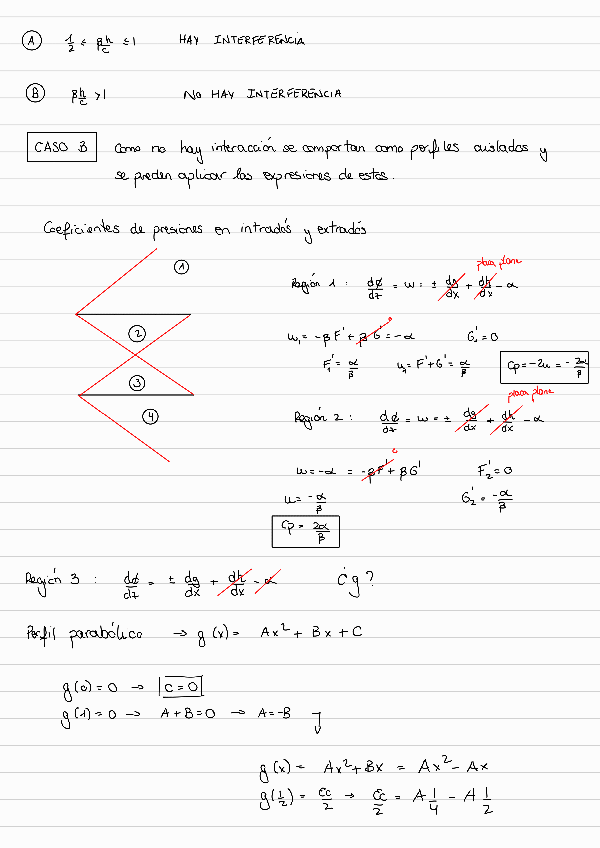 (A) 1/2 ≤ βh/c ≤ 1 HAY INTERFERENCIA
(B) βh/c > 1 NO HAY INTERFERENCIA
CASO B Como no hay interacción se comportan como perfiles aislados y
se pueden aplicar las expresiones de estos.
Coeficientes de presiones en intradós y extradós
1
2
3
4
placa plana
Región 1 : dφ/dz = w = ± dg/dx + dh/dx - α
w₁ = -βF' + βG' = -α G'₁ = 0
0
F'₁ = α/β u₁ = F' + G' = α/β Cp = -2u = -2α/β
placa plana
Región 2 : dφ/dz = w = ± dg/dx + dh/dx - α
0
w = -α = -βF' + βG' F'₂ = 0
u = -α/β G'₂ = -α/β
Cp = 2α/β
Región 3 : dφ/dz = ± dg/dx + dh/dx - α ¿g?
Perfil parabólico → g(x) = Ax² + Bx + C
g(0) = 0 → C = 0
g(1) = 0 → A + B = 0 → A = -B
g(x) = Ax² + Bx = Ax² - Ax
g(1/2) = εc/2 → εc/2 = A 1/4 - A 1/2